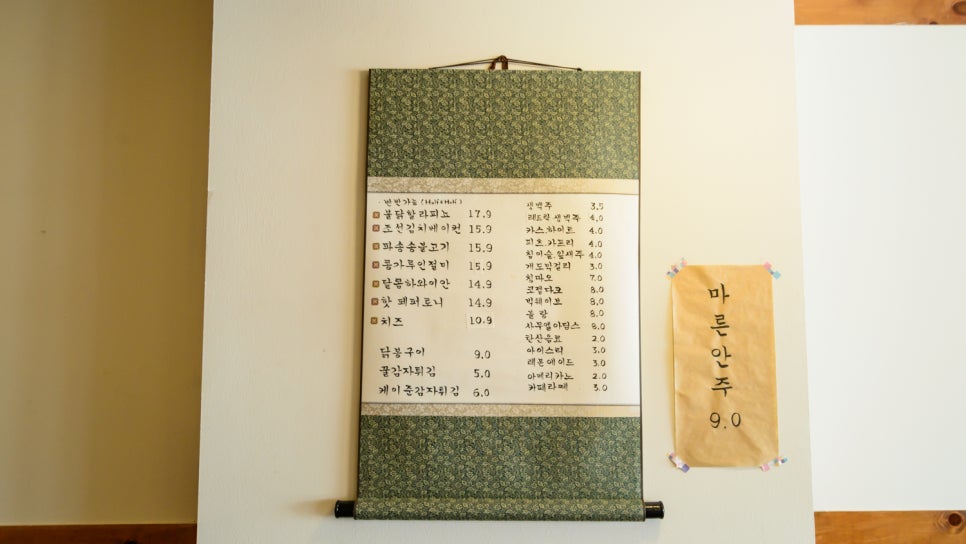 · 반반가능 (Half&Half)
불닭할라피뇨 17.9
조선김치베이컨 15.9
파송송불고기 15.9
콩가루인절미 15.9
달콤하와이안 14.9
핫 페퍼로니 14.9
치즈 10.9
닭봉구이 9.0
꿀감자튀김 5.0
케이준감자튀김 6.0
생맥주 3.5
레드락 생맥주 4.0
카스.하이트 4.0
피츠.카프리 4.0
참이슬.잎새주 4.0
개도막걸리 3.0
칭따오 7.0
코젤다크 8.0
빅웨이브 8.0
블랑 8.0
사무엘아담스 8.0
탄산음료 2.0
아이스티 3.0
레몬에이드 3.0
아메리카노 2.0
카페라떼 3.0
마른안주
9.0